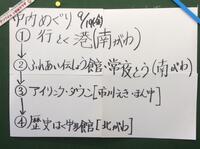 市内めぐり 9/19(金)
① 行とく 港(南がわ)
② ふれあい伝しょう館・常夜とう(南がわ)
③ アイリンク・タウンこ[市川えき・まん中]
④ 歴史はく学館[北がわ]